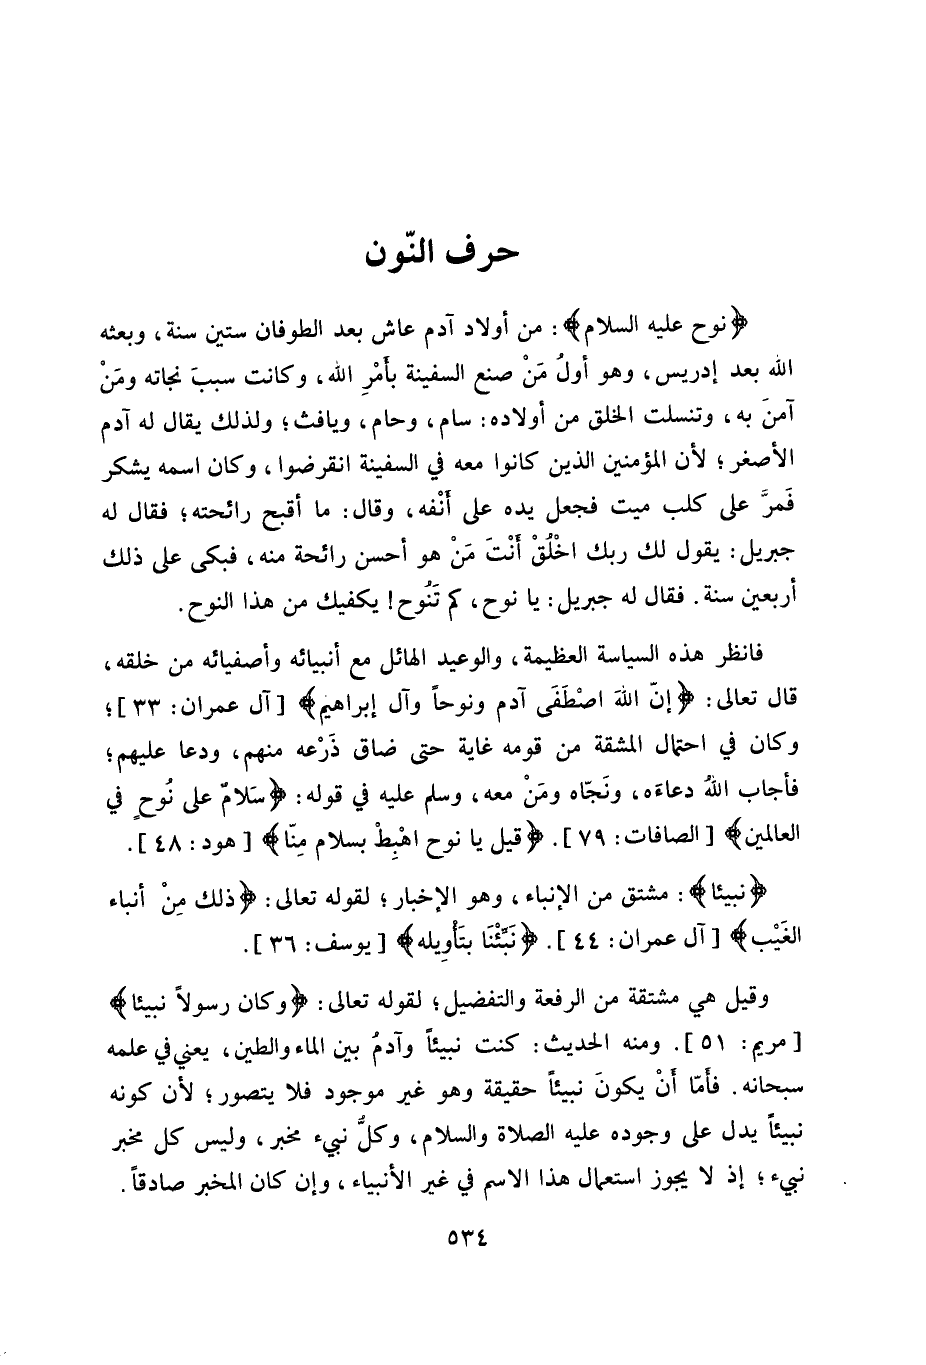 حرف النّون
﴿نوح عليه السلام﴾: من أولاد آدم عاش بعد الطوفان ستين سنة، وبعثه
الله بعد إدريس، وهو أولُ مَنْ صنع السفينة بأَمْرِ الله، وكانت سببَ نجاته ومَنْ
آمنَ به، وتنسلت الخلق من أولاده: سام، وحام، ويافث؛ ولذلك يقال له آدم
الأصغر؛ لأن المؤمنين الذين كانوا معه في السفينة انقرضوا، وكان اسمه يشكر
فَمرَّ على كلب ميت فجعل يده على أَنْفه، وقال: ما أقبح رائحته؛ فقال له
جبريل: يقول لك ربك اخْلُقْ أَنْتَ مَنْ هو أحسن رائحة منه، فبكى على ذلك
أربعين سنة. فقال له جبريل: يا نوح، كم تَنُوح! يكفيك من هذا النوح.
فانظر هذه السياسة العظيمة، والوعيد الهائل مع أنبيائه وأصفيائه من خلقه،
قال تعالى: ﴿إنّ اللهَ اصْطَفَى آدم ونوحاً وآل إبراهيم﴾ [آل عمران: ٣٣]؛
وكان في احتمال المشقة من قومه غاية حتى ضاق ذَرْعه منهم، ودعا عليهم؛
فأجاب اللهُ دعاءَه، ونَجّاه ومَنْ معه، وسلم عليه في قوله: ﴿سَلامٌ على نُوحٍ في
العالمين﴾ [الصافات: ٧٩]. ﴿قيل يا نوح اهْبِطْ بسلام مِنّا﴾ [هود: ٤٨].
﴿نبيئا﴾: مشتق من الإنباء، وهو الإخبار؛ لقوله تعالى: ﴿ذلك مِنْ أنباء
الغَيْب﴾ [آل عمران: ٤٤]. ﴿نَبِّئْنَا بتَأْوِيله﴾ [يوسف: ٣٦].
وقيل هي مشتقة من الرفعة والتفضيل؛ لقوله تعالى: ﴿وكان رسولاً نبيئا﴾
[مريم: ٥١]. ومنه الحديث: كنت نبيئاً وآدمُ بين الماء والطين، يعني في علمه
سبحانه. فأَمّا أَنْ يكونَ نبيئاً حقيقة وهو غير موجود فلا يتصور؛ لأن كونه
نبيئاً يدل على وجوده عليه الصلاة والسلام، وكلُّ نبيء مخبر، وليس كل مخبر
نبيء؛ إذ لا يجوز استعمال هذا الاسم في غير الأنبياء، وإن كان المخبر صادقاً.
٥٣٤